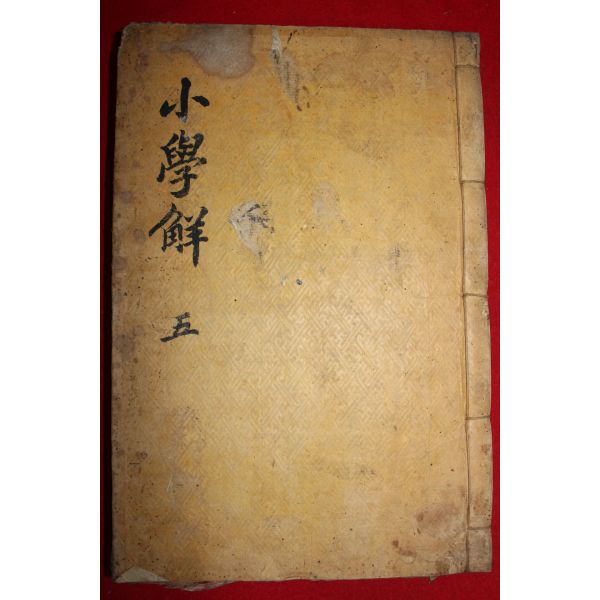 小學觧
五